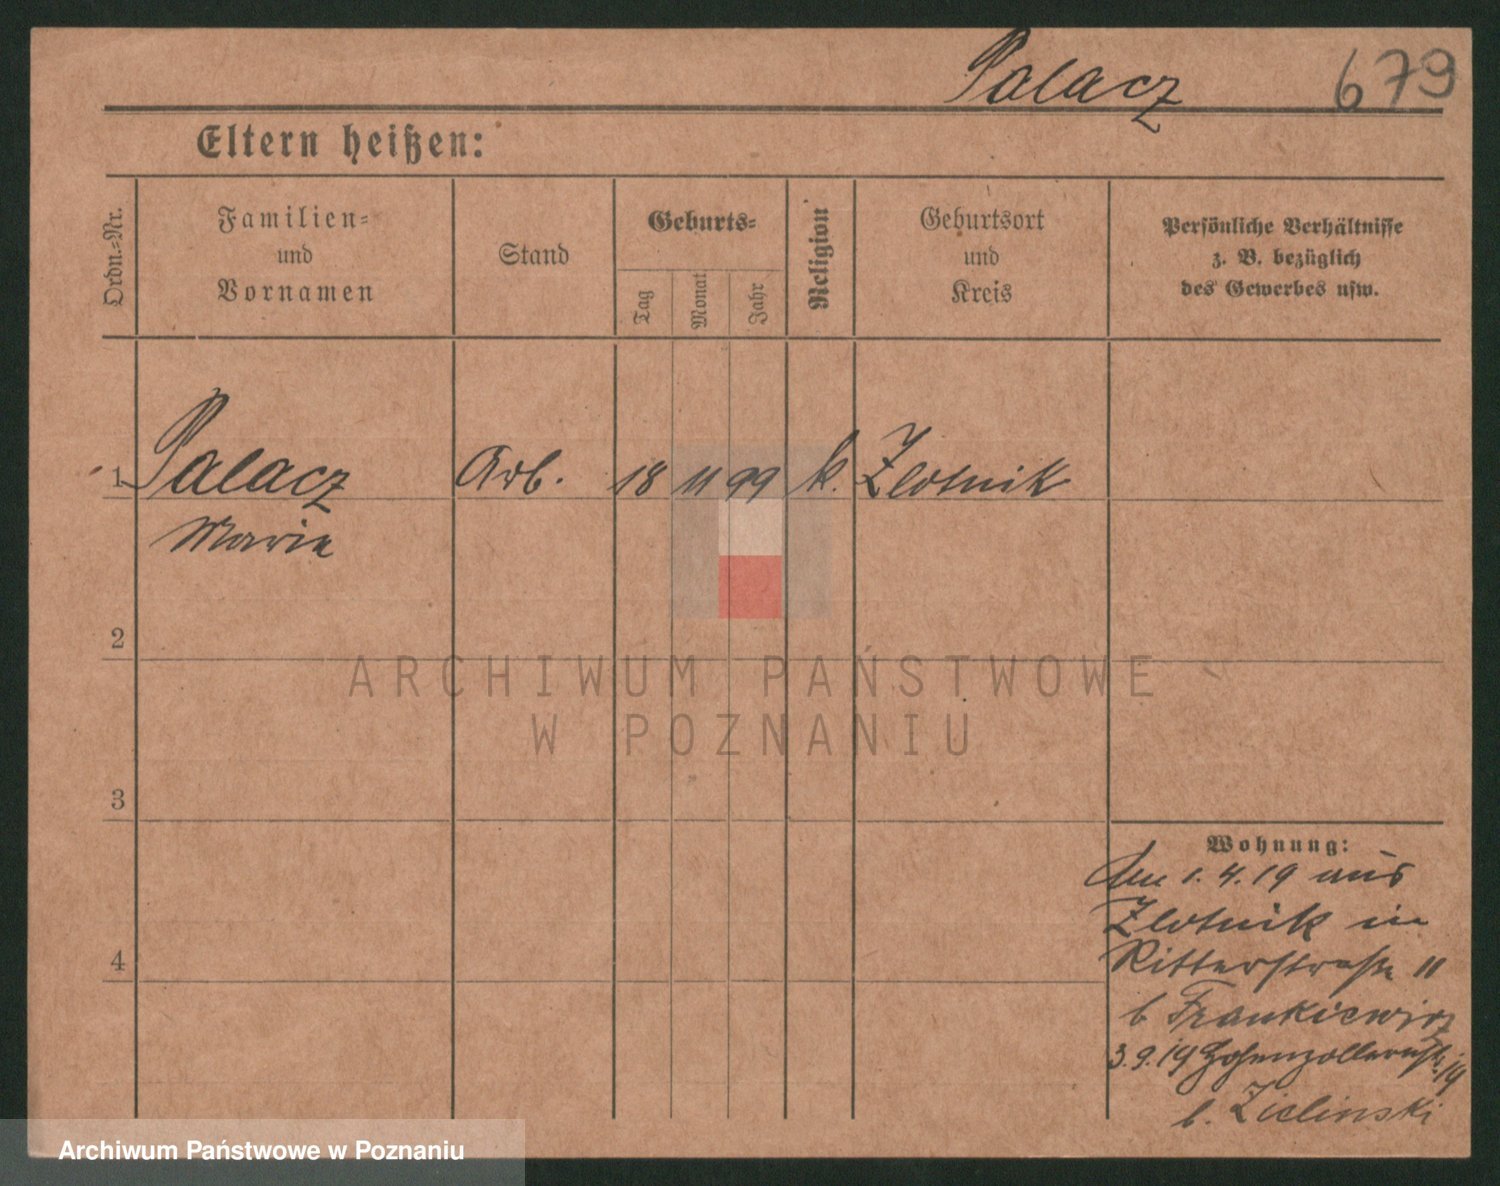 Palacz 679
Eltern heißen:
Ordn.=Nr.
Familien=
und
Vornamen
Stand
Geburts=
Tag
Monat
Jahr
Religion
Geburtsort
und
Kreis
Persönliche Verhältnisse
z. B. bezüglich
des Gewerbes usw.
1 Palacz Arb. 18 11 99 k. Zlotnik
Marie
2
3
4
Wohnung:
Am 1.4.19 aus
Zlotnik in
Ritterstraße 11
b Frankiewicz
3.9.19 Hohenzollernstr. 19
b. Zielinski
ARCHIWUM PAŃSTWOWE
W POZNANIU
Archiwum Państwowe w Poznaniu